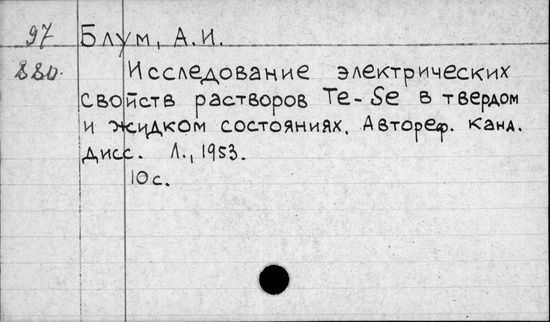 97 Блум, А.И.
880. Исследование электрических
свойств растворов Te-Se в твердом
и жидком состояниях. Автореф. канд.
дисс. Л., 1953.
10 с.